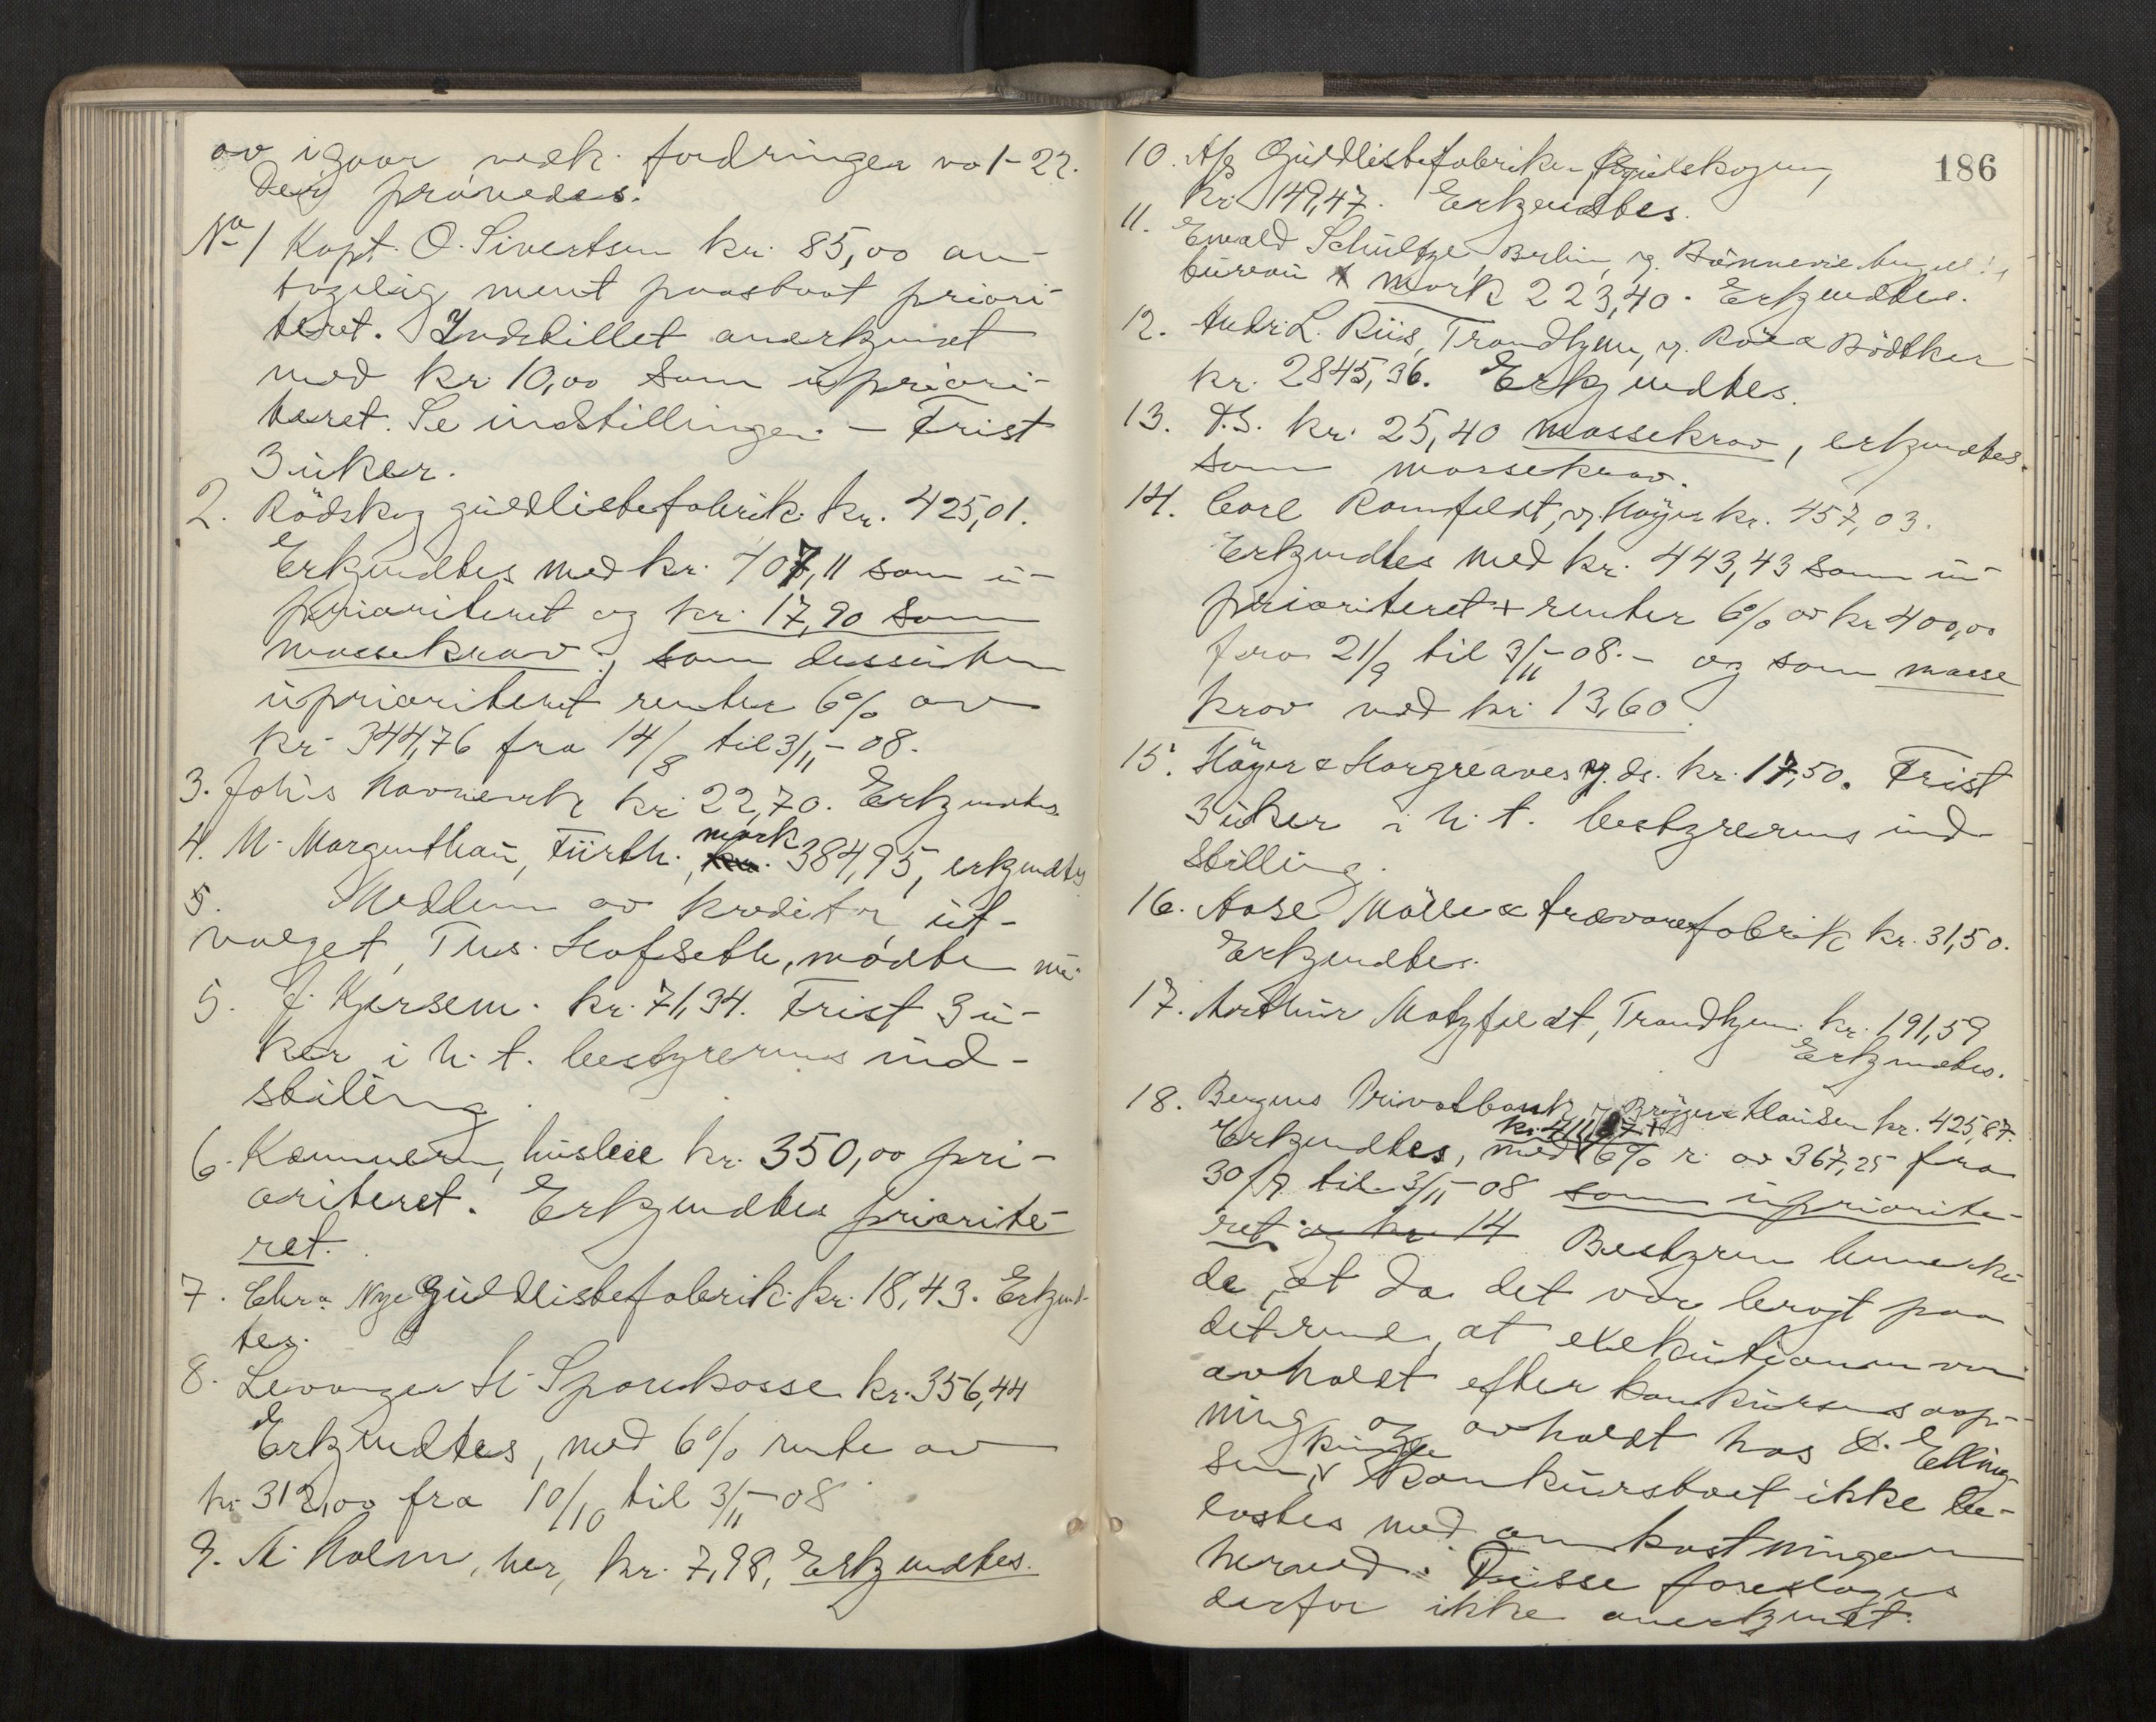 av igaar vedk. fordringer no 1-22.
Der prøvedes.
No 1 Kapt. O. Sivertsen kr. 85,00 an-
tagelig ment paastaat priori-
teret. Indstillet anerkjendt
med kr. 10,00 som upriori-
teret. Se indstillingen. — Frist
3 uker.
2. Rödskog guldlistefabrik kr. 425,01.
Erkjendtes med kr. 407,11 som u-
prioriteret og kr. 17,90 som
massekrav; som dessuten
uprioriteret renter 6% av
kr. 344,76 fra 14/8 til 3/11-08.
3. Joh's Navneverk kr. 22,70. Erkjendtes.
4. M. Morgenthau, Fürth, kr. mark 384,95, erkjendtes
5. Medlem av kreditorut-
valget, Ths. Hofseth, mödte nu.
5. J. Kjersem. kr. 71,34. Frist 3 u-
ker i h. t. bestyrerens ind-
stilling.
6. Kemneren, husleie kr. 350,00 pri-
oriteret. Erkjendtes priorite-
ret.
7. Chra Nye Guldlistefabrik kr. 18,43. Erkjend-
tes.
8. Levanger Sparekasse kr. 356,44
Erkjendtes, med 6% rente av
kr 312,00 fra 10/10 til 3/11-08
9. M. Holm, her, kr. 7,98, Erkjendtes.
186
10. A/S Guldlistefabriken
kr. 149,47. Erkjendtes.
11. Ewald Schultze, Berlin, v.
bureau mark 223,40. Erkjendtes.
12. Andr. L. Riis, Trondhjem, v. Roll & Bödtker
kr. 2845,36. Erkjendtes.
13. D.S. kr. 25,40 massekrav, erkjendtes
som massekrav.
14. Carl Ramfeldt, v. Höyer kr. 457,03.
Erkjendtes med kr. 443,43 som u-
prioriteret + renter 6% av kr 400,00
fra 21/9 til 3/11-08. — og som masse
krav med kr. 13,60.
15. Höyer & Hargreaves v. ds. kr. 17,50. Frist
3 uker i h. t. bestyrerens ind-
stilling.
16. Aase Mölle & trævarefabrik kr. 31,50.
Erkjendtes.
17. Arthur Motzfeldt, Trondhjem kr. 191,59
Erkjendtes.
18. Bergens Privatbank v. Brügger & Clausen kr. 425,87.
Erkjendtes, med kr. 411,87 + 6% r. av 367,25 fra
30/9 til 3/11-08 som upriorite-
ret og kr 14 Bestyreren bemerke-
de, at da det var bragt paa
det rene, at exekutionen var
avholdt efter konkursens aap-
ning og avholdt hos E. Elling-
sen, kunde konkursboet ikke be-
lastes med omkostningerne
herved. Disse foresloges
derfor ikke anerkjendt.